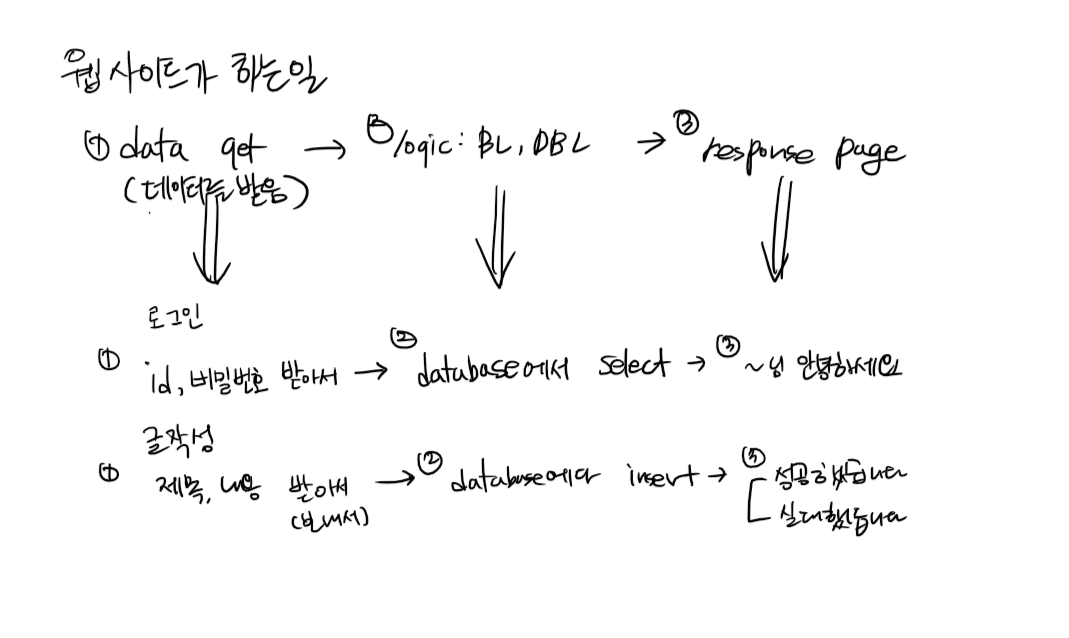 웹사이트가 하는일
① data get → ② logic: BL, DBL → ③ response page
(데이터를 받음)
로그인
① id, 비밀번호 받아서 → ② database에서 select → ③ ~님 안녕하세요
글작성
① 제목, 내용 받아서 → ② database에다 insert → ③ 성공했습니다
(보내서) 실패했습니다